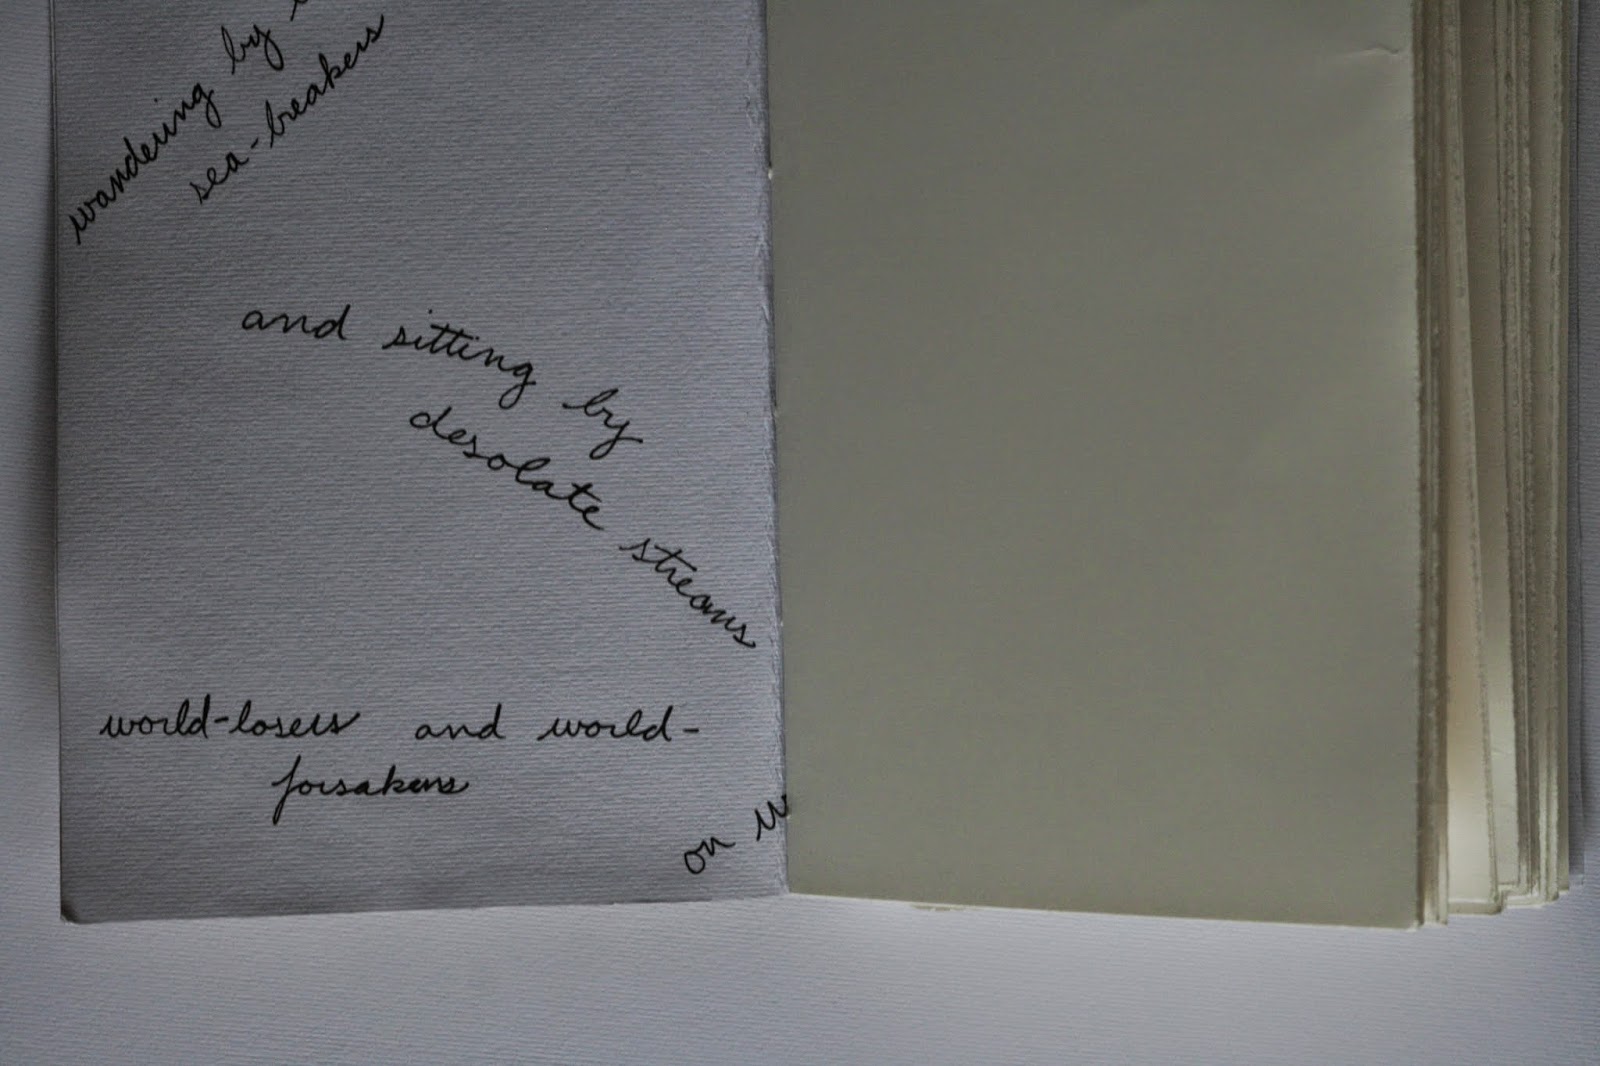 wandering by
sea-breakers
and sitting by
desolate streams
world-losers and world-
forsakers
on